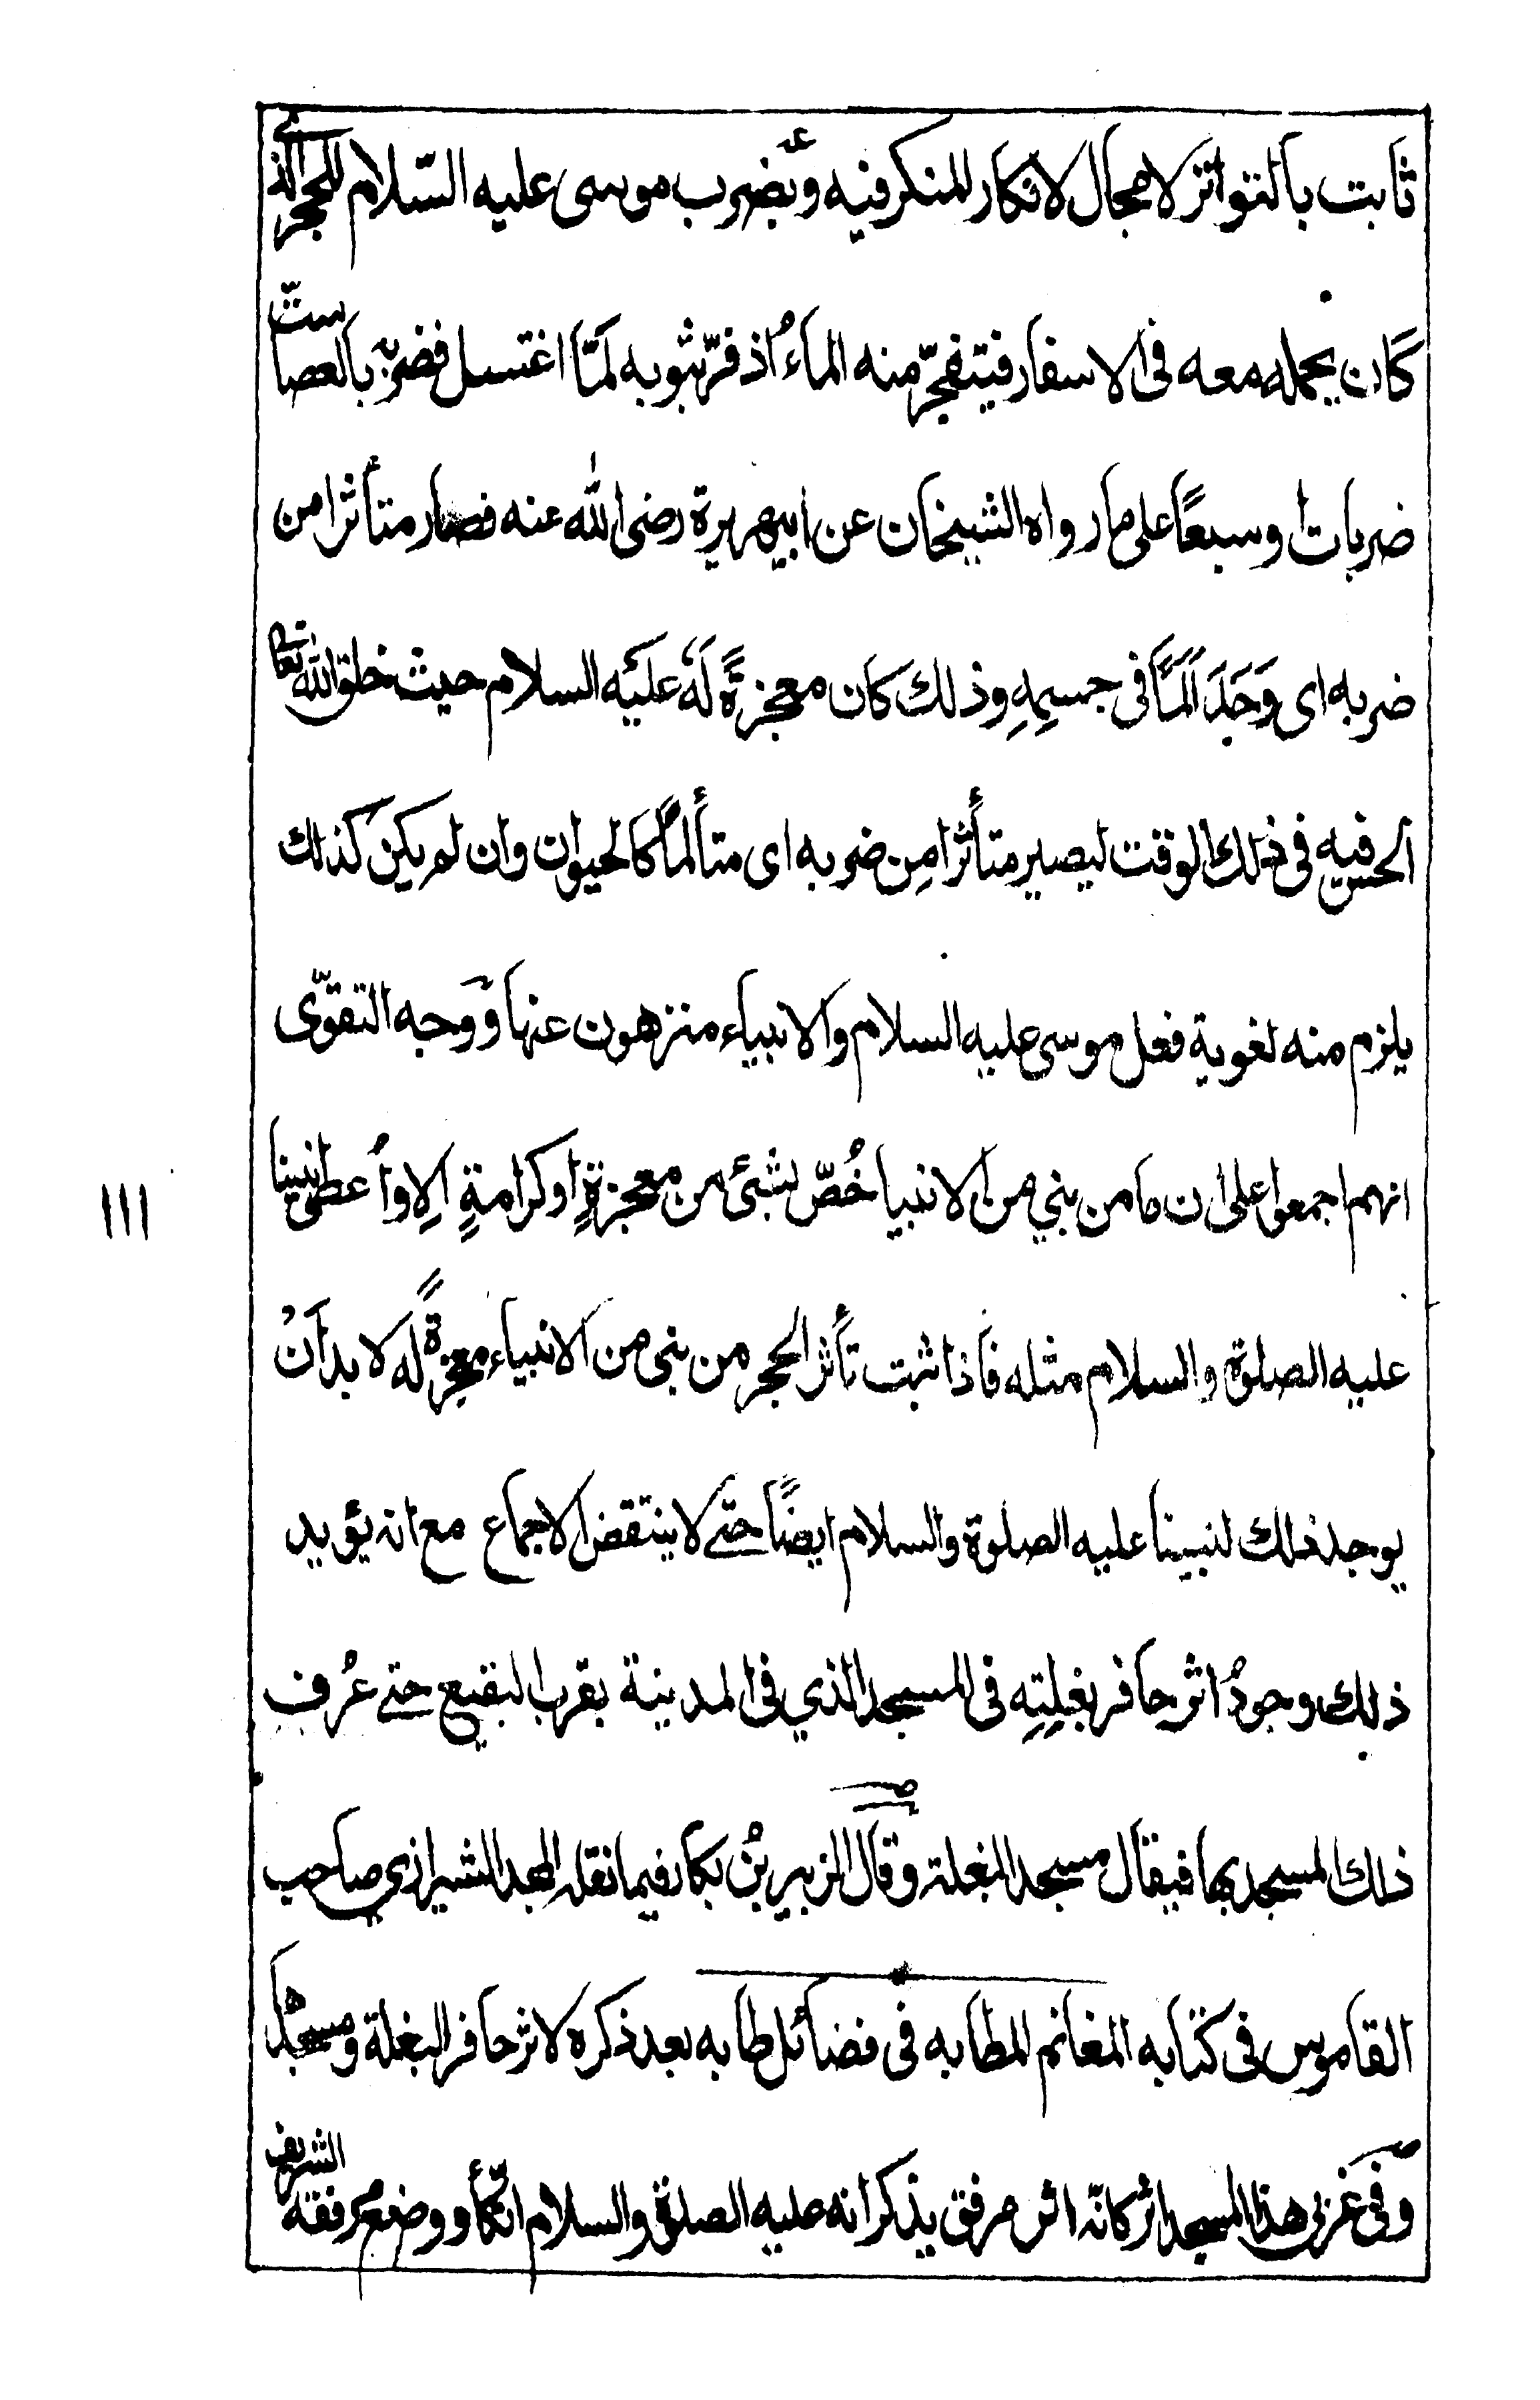 ثابت بالتواتر لا مجال لانكار المنكر فيه وبضرب موسى عليه السّلام للحجر الذى
كان يحمله معه فى الاسفار فيتفجّر منه الماءُ اذ فرّ بثوبه لمّا اغتسل فضربه بالعصا ستّ
ضربات او سبعًا على ما رواه الشيخان عن ابيهريرة رضى الله عنه فصار متأثرا من
ضربه اى وَجَدَ اَلَمًا فى جسمِهِ وذلك كان معجزةً لَهُ عليَه السلام حيث خلق الله تعا
الحس فيه فى ذلك الوقت ليصير متأثرا مِن ضربه اى متألماً كالحيوان وان لم يكن كذلك
يلزم منه لغوية فعل موسى عليه السلام والانبياء منزهون عنها وَوجه التقوّى
انهم اجمعوا على ان ما من بني من الانبيا خُصّ بشئ من معجزةٍ او كرامةٍ اِلا واُعطى نبينا
عليه الصلوة والسلام مثله فاذا ثبت تأثر الحجر من بنى من الانبياء معجزةً له لا بد اَنْ
يوجد ذلك لنبينا عليه الصلوة والسلام ايضًا حتى لا ينتقض الاجماع مع انه يؤيد
ذلك وجودُ اثر حافر بغلِتِه فى المسجد الذي فى المدينة بقرب البقيع حتى عُرف
ذلك المسجد بها فيقال مسجد البغلة وقال الزبير بْن بكار فيما نقله المجد الشيرازي صاحب
القاموس فى كتابه المغانم المطابه فى فضائل طابه بعد ذكره لاثر حافر البغلة ومسجدها
وفى غربى هذا المسجد اثر كانّه اثر مرفق يذكر انه عليه الصلوة والسلام اتّكأ ووضع مرفقه الشريف
١١١